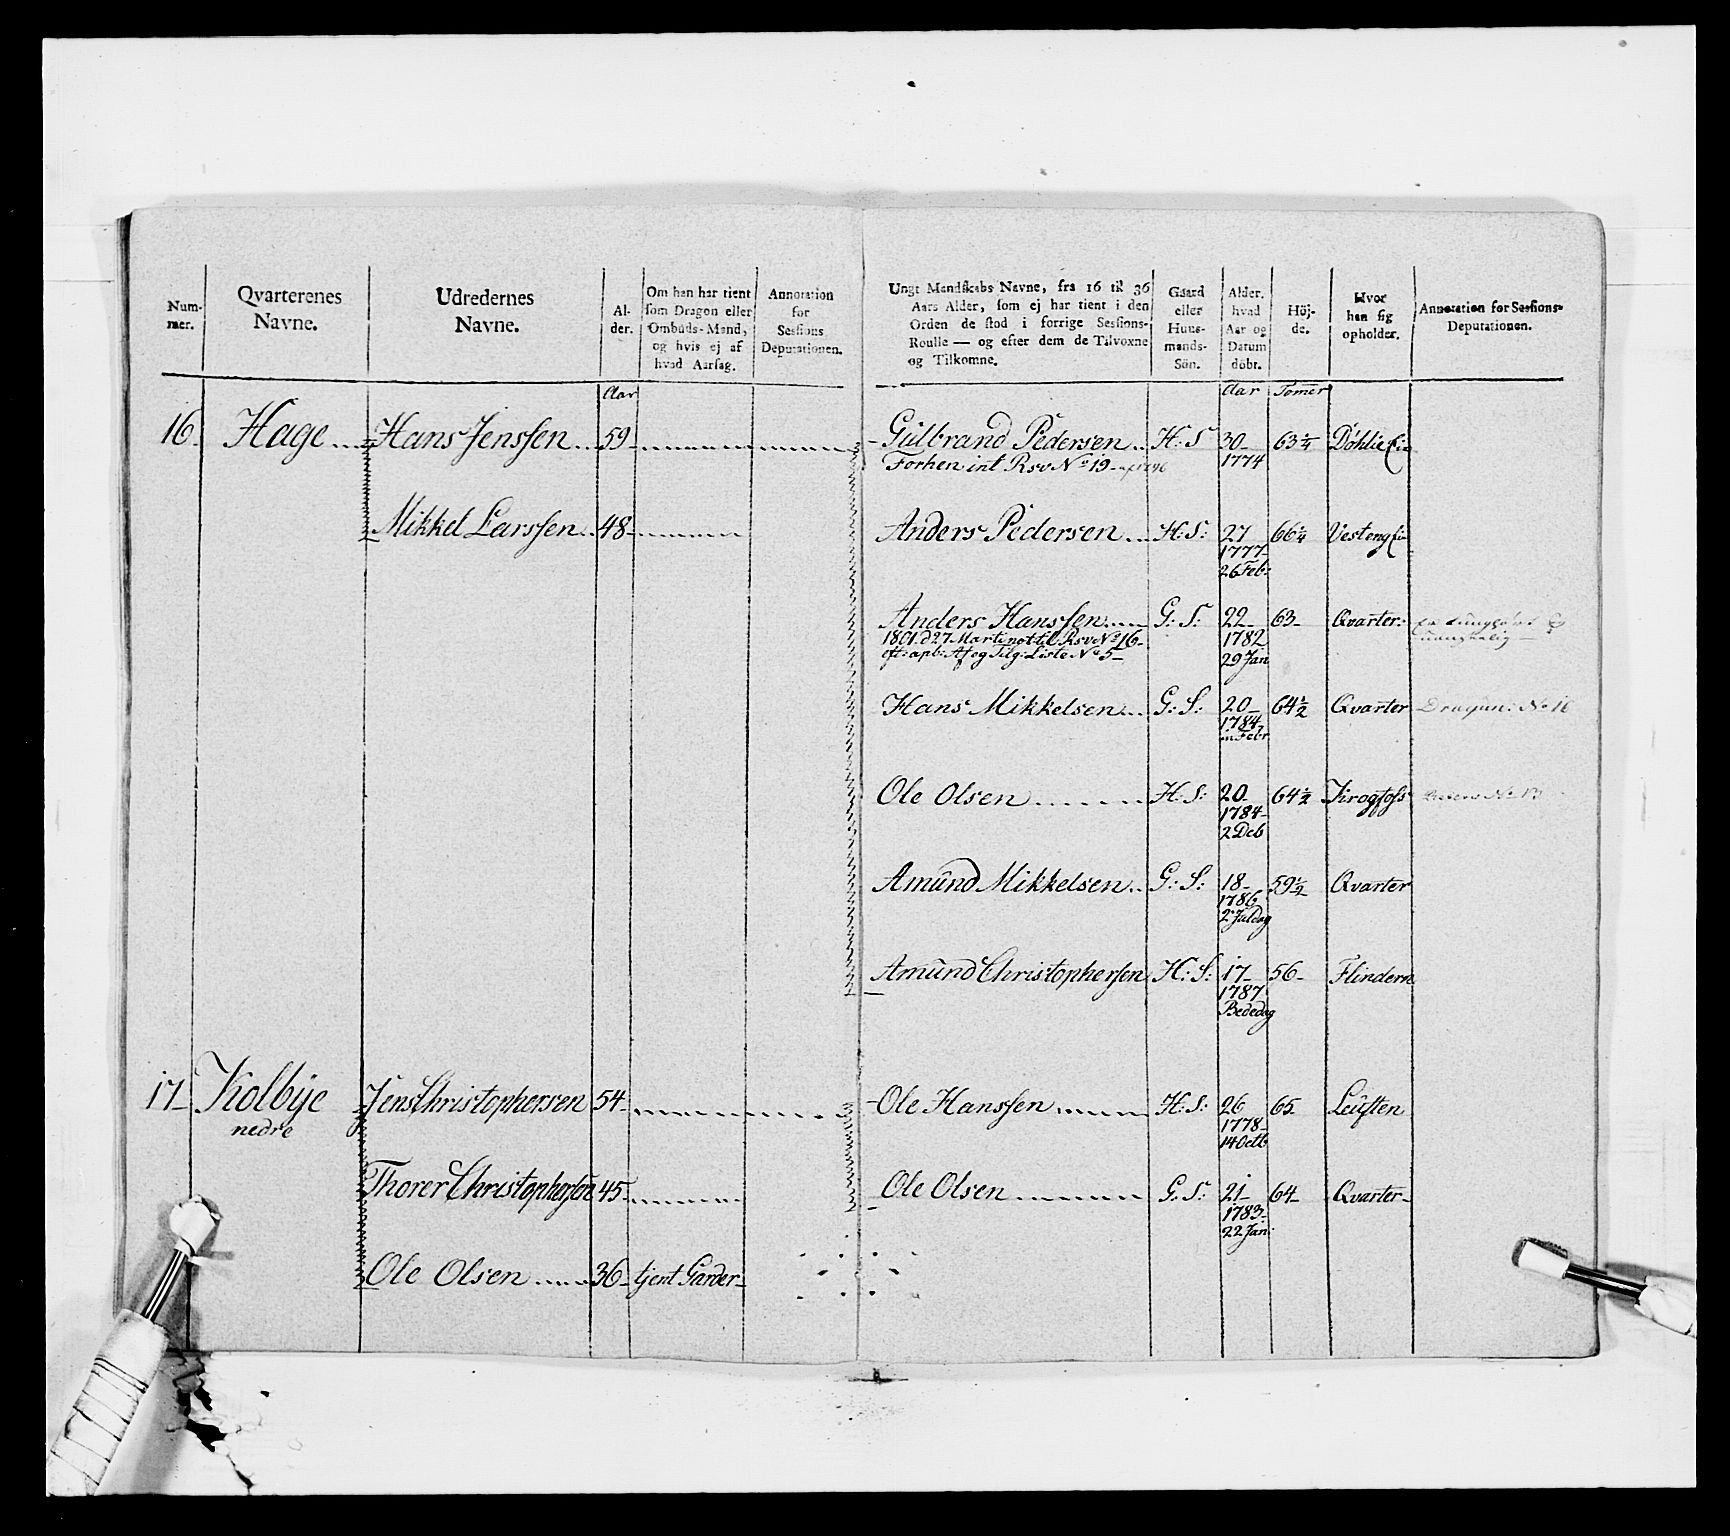 Num-
mer.
Qvarterenes
Navne.
Udredernes
Navne.
Al-
der.
Om han har tient
som Dragon eller
Ombuds-Mand,
og hvis ej af
hvad Aarsag.
Annotation
for
Sessions
Deputationen.
Ungt Mandskabs Navne, fra 16 til 36
Aars Alder, som ej har tient i den
Orden de stod i forrige Sessions-
Roulle — og efter dem de Tilvoxne
og Tilkomne.
Gaard
eller
Huus-
mands-
Søn.
Alder.
hvad
Aar og
Datum
döbt.
Höj-
de.
Hvor
han sig
opholder.
Annotation for Sessions-
Deputationen.
Aar
Aar Tomer
16. Hage Hans Jenssen 59
Gulbrand Pedersen H: S 30 63 1/4 Döhlie
Forhen int Rsv No 19 1774
Mikkel Larssen 48
Anders Pedersen H: S: 27 66 1/4 Vesteng
1777
26 Feb:
Anders Hanssen G: S: 22 63 Qvarter
1801 d 27 Marti not til Rsv No 16 1782
eft: apb: Af og Tilg: Liste No 5 29 Jan
Hans Mikkelsen G: S: 20 64 1/2 Qvarter Dragun: No 16
1784
in Febr
Ole Olsen H: S: 20 64 1/2 Krogfoss No 13
1784
2 Deb
Amund Mikkelsen G: S: 18 59 1/2 Qvarter
1786
2 Juldag
Amund Christophersen H: S: 17 56 Flindern
1787
Bededag
17 Kolbye Jens Christophersen 54
nedre
Ole Hanssen H: S: 26 65 Leüsten
1778
14 Octb
Thorer Christophersen 45
Ole Olsen G: S: 21 64 Qvarter
1783
22 Jan:
Ole Olsen 36 tjent Garder